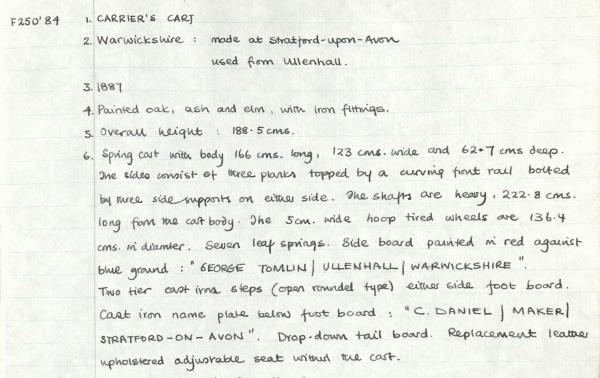 F250'84 1. CARRIER'S CART
2. Warwickshire : made at Stratford-upon-Avon
used from Ullenhall.
3. 1887
4. Painted oak, ash and elm, with iron fittings.
5. Overall height : 188.5 cms.
6. Spring cart with body 166 cms. long, 123 cms. wide and 62.7 cms deep.
The sides consist of three planks topped by a curving front rail bolted
by three side supports on either side. The shafts are heavy, 222.8 cms.
long from the cart body. The 5cm. wide hoop tired wheels are 136.4
cms. in diamter. Seven leaf springs. Side board painted in red against
blue ground : "GEORGE TOMLIN | ULLENHALL | WARWICKSHIRE".
Two tier cast iron steps (open roundel type) either side foot board.
Cast iron name plate below foot board : "C. DANIEL | MAKER |
STRATFORD-ON-AVON". Drop-down tail board. Replacement leather
upholstered adjustable seat within the cart.